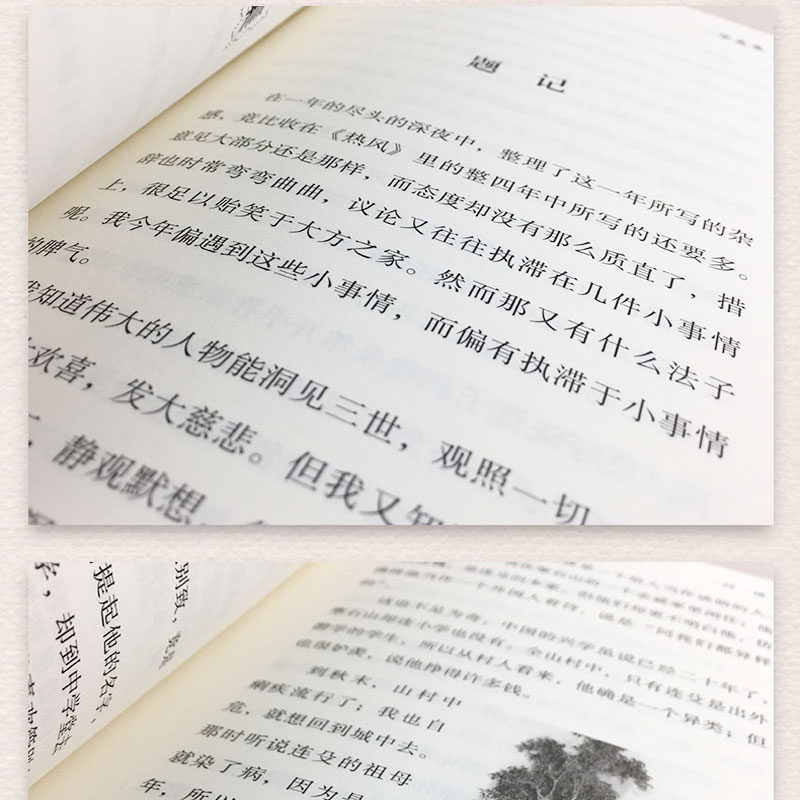 华盖集
题 记
在一年的尽头的深夜中，整理了这一年所写的杂
感，竟比收在《热风》里的整四年中所写的还要多。
意见大部分还是那样，而态度却没有那么质直了，措
辞也时常弯弯曲曲，议论又往往执滞在几件小事情
上，很足以贻笑于大方之家。然而那又有什么法子
呢。我今年偏遇到这些小事情，而偏有执滞于小事情
的脾气。
我知道伟大的人物能洞见三世，观照一切
大欢喜，发大慈悲。但我又知
静观默想
提起他的名字，
却到中学堂去
别致，竟是
这也不足为奇，中国的兴学虽说已经二十年了，
寒石山却连小学也没有。全山村中，只有连殳是出外
游学的学生，所以从村人看来，他确是一个异类；但
也很妒羡，说他挣得许多钱。
到秋末，山村中
痢疾流行了；我也自
危，就想回到城中去。
那时听说连殳的祖母
就染了病，因为是
年，所以